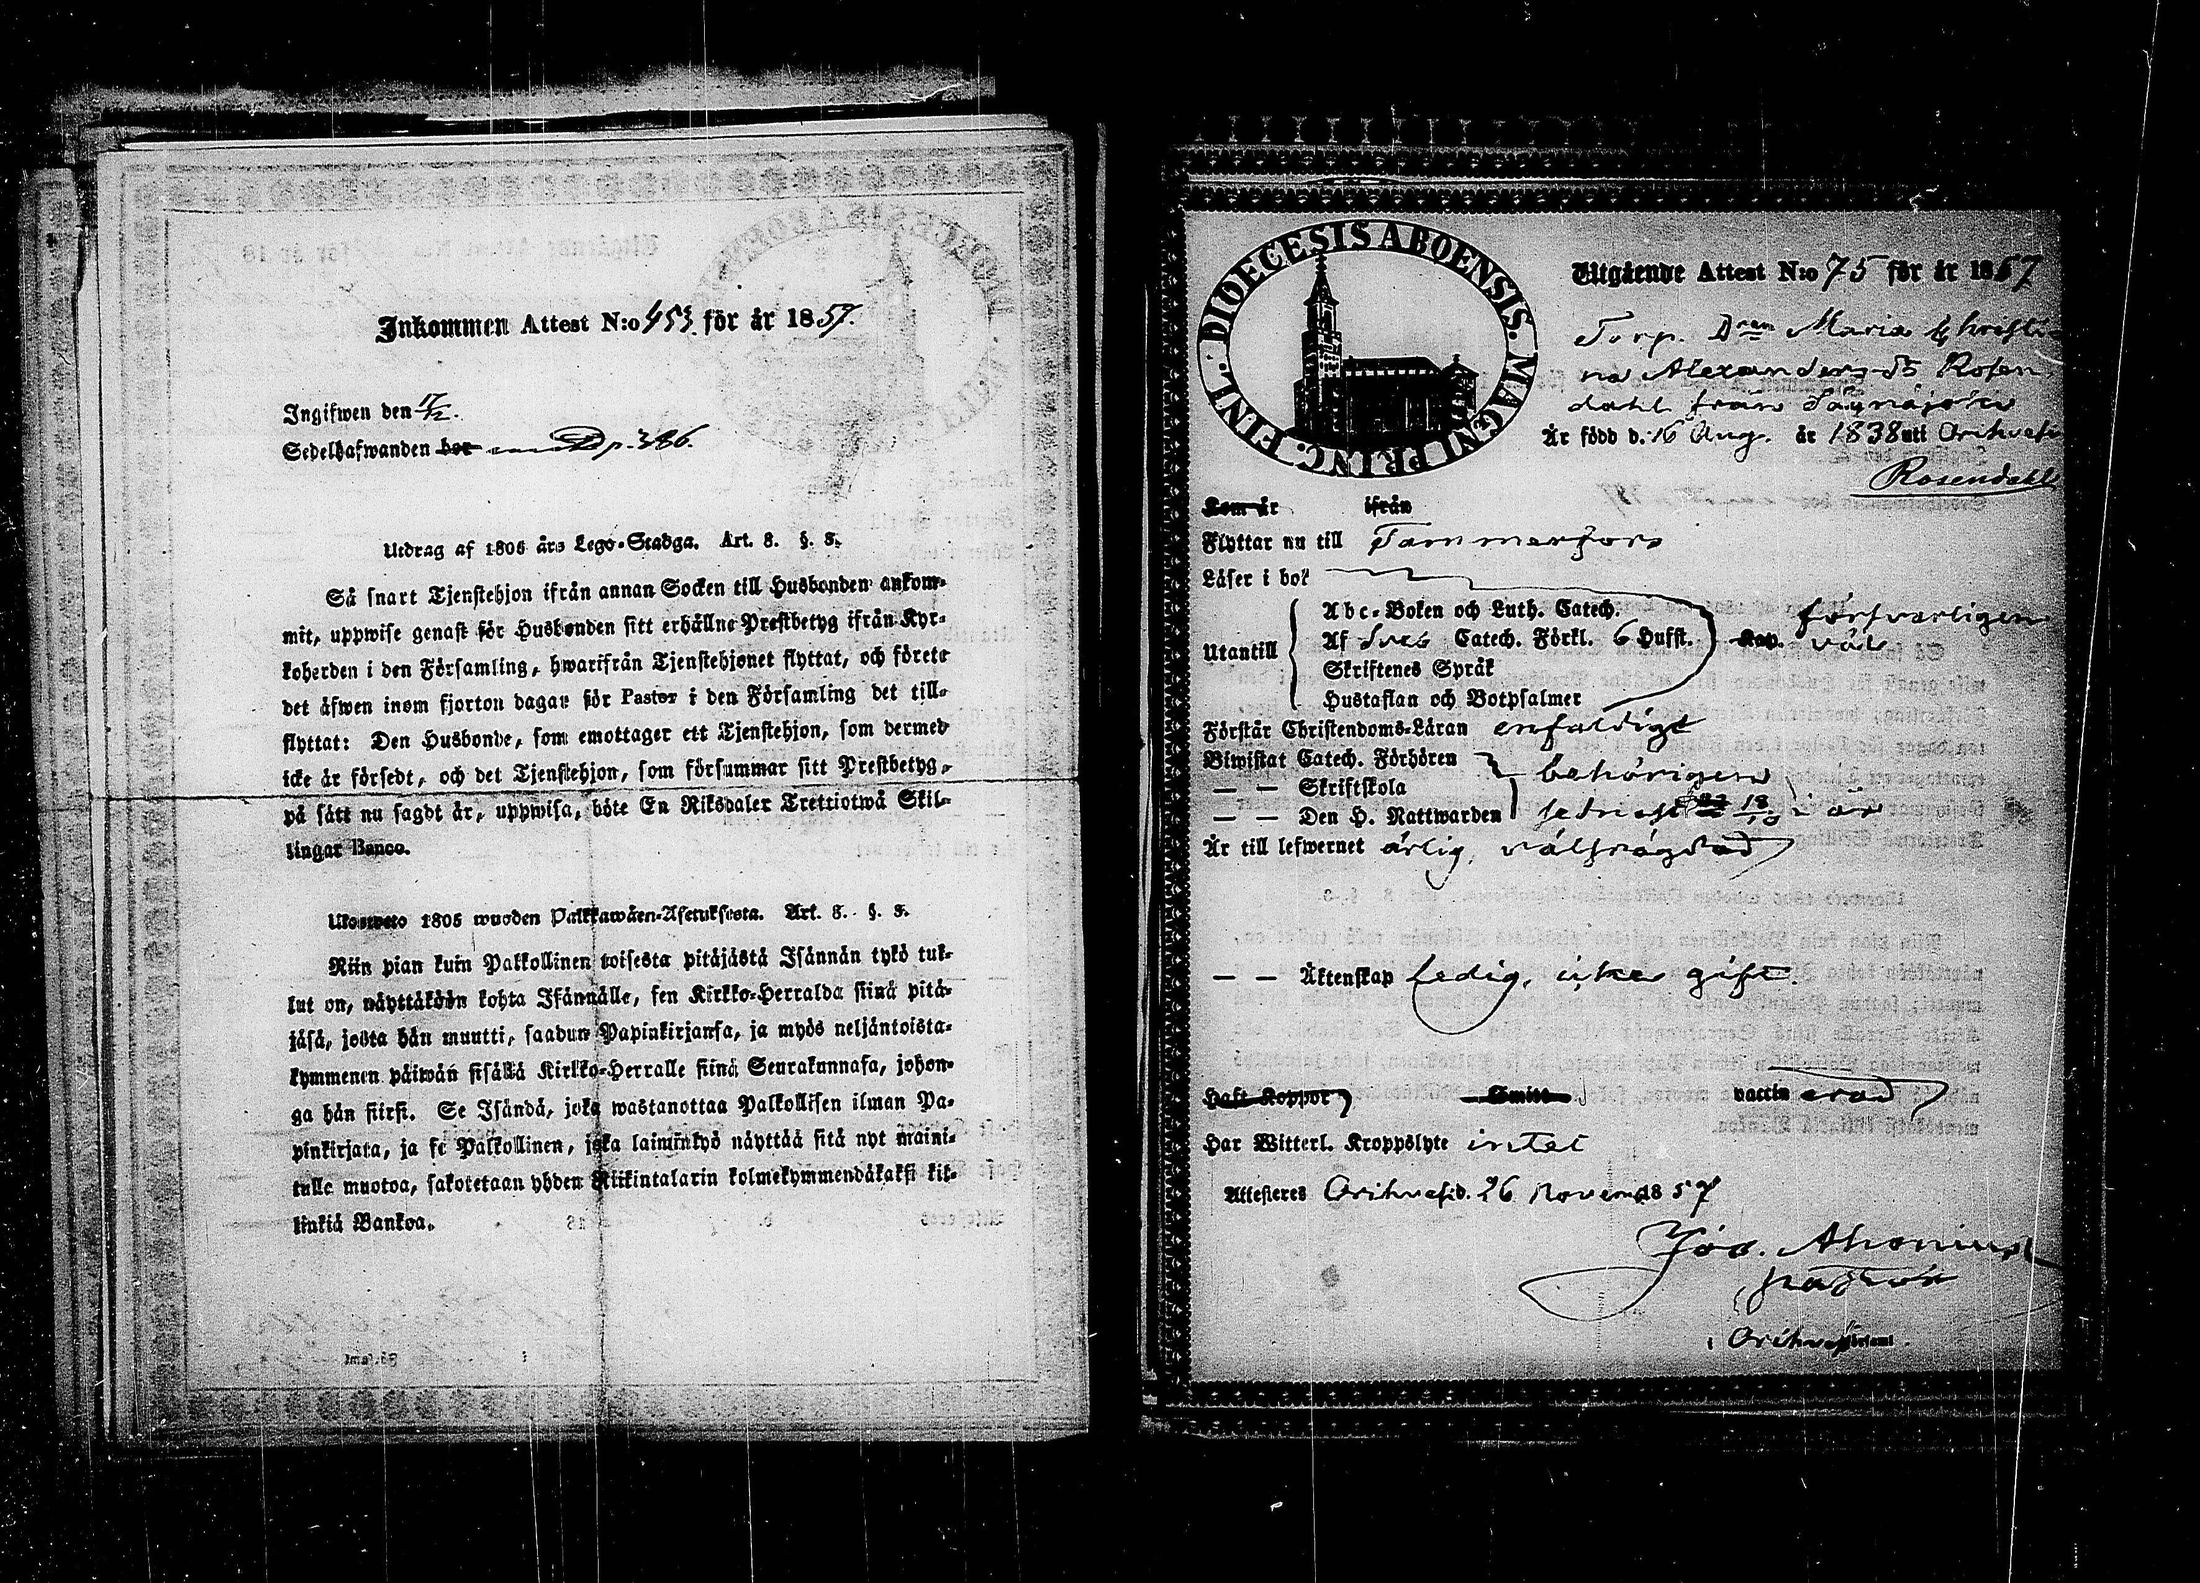 Inkommen Attest N:o 453. för år 1857.
Ingifwen den 17/12.
Sedelhafwanden bor p. 386.
Utdrag af 1805 års Lego-Stadga. Art. 8. §. 8.
Så snart Tjenstehjon ifrån annan Socken till Husbonden ankom-
mit, uppwise genast för Husbonden sitt erhållne Prestbetyg ifrån Kyr-
koherden i den Församling, hwarifrån Tjenstehjonet flyttat, och förete
det äfwen inom fjorton dagar för Pastor i den Församling det till-
flyttat: Den Husbonde, som emottager ett Tjenstehjon, som dermed
icke är försedt, och det Tjenstehjon, som försummar sitt Prestbetyg,
på sätt nu sagdt är, uppwisa, böte En Riksdaler Trettiotwå Skil-
lingar Banco.
Ulosweto 1805 wuoden Palkkawäen-Asetuksesta. Art. 8. §. 8.
Niin pian kuin Palkollinen toisesta pitäjästä Isännän tykö tul-
lut on, näyttäköön kohta Isännälle, sen Kirkko-Herralda siinä pitä-
jäsä, josta hän muutti, saadun Papinkirjansa, ja myös neljäntoista-
kymmenen päiwän sisällä Kirkko-Herralle siinä Seurakunnasa, johon-
ga hän siirsi. Se Isändä, joka wastanottaa Palkollisen ilman Pa-
pinkirjata, ja se Palkollinen, joka laiminlyö näyttää sitä nyt maini-
tulla muotoa, sakotetaan yhden Riikintalarin kolmekymmendäkaksi kil-
linkiä Bankoa.
DIOECESIS ABOENSIS. MAGNI PRINC. FINL.
Utgående Attest N:o 75 för år 1857
Torp. Dren Maria Christi-
na Alexandersdr Rosen
dahl från
Är född d. 16 Aug. år 1838 uti Orihvesi
Rosendahl
Kom år ifrån
Flyttar nu till Tammerfors
Läser i bok
Utantill
Abc-Boken och Luth. Catech.
Af Sveb Catech. Förkl. 6 Hufst. Kap. försvarligen
väl
Skriftenes Språk
Hustaflan och Botpsalmer
Förstår Christendoms-Läran enfaldigt
Biwistat Catech. Förhören behörigen
— — Skriftskola
— — Den H. Nattwarden sednast 18/10 i år
Är till lefwernet ärlig, välfrägdad
— — Äktenskap ledig, icke gift.
Haft Koppor Smitt vaccin erad
Har Witterl. Kroppslyte intet
Attesteres Orihvesi d. 26 Novemb 1857
Joo. Ahonius
pastor
i Orihvesi